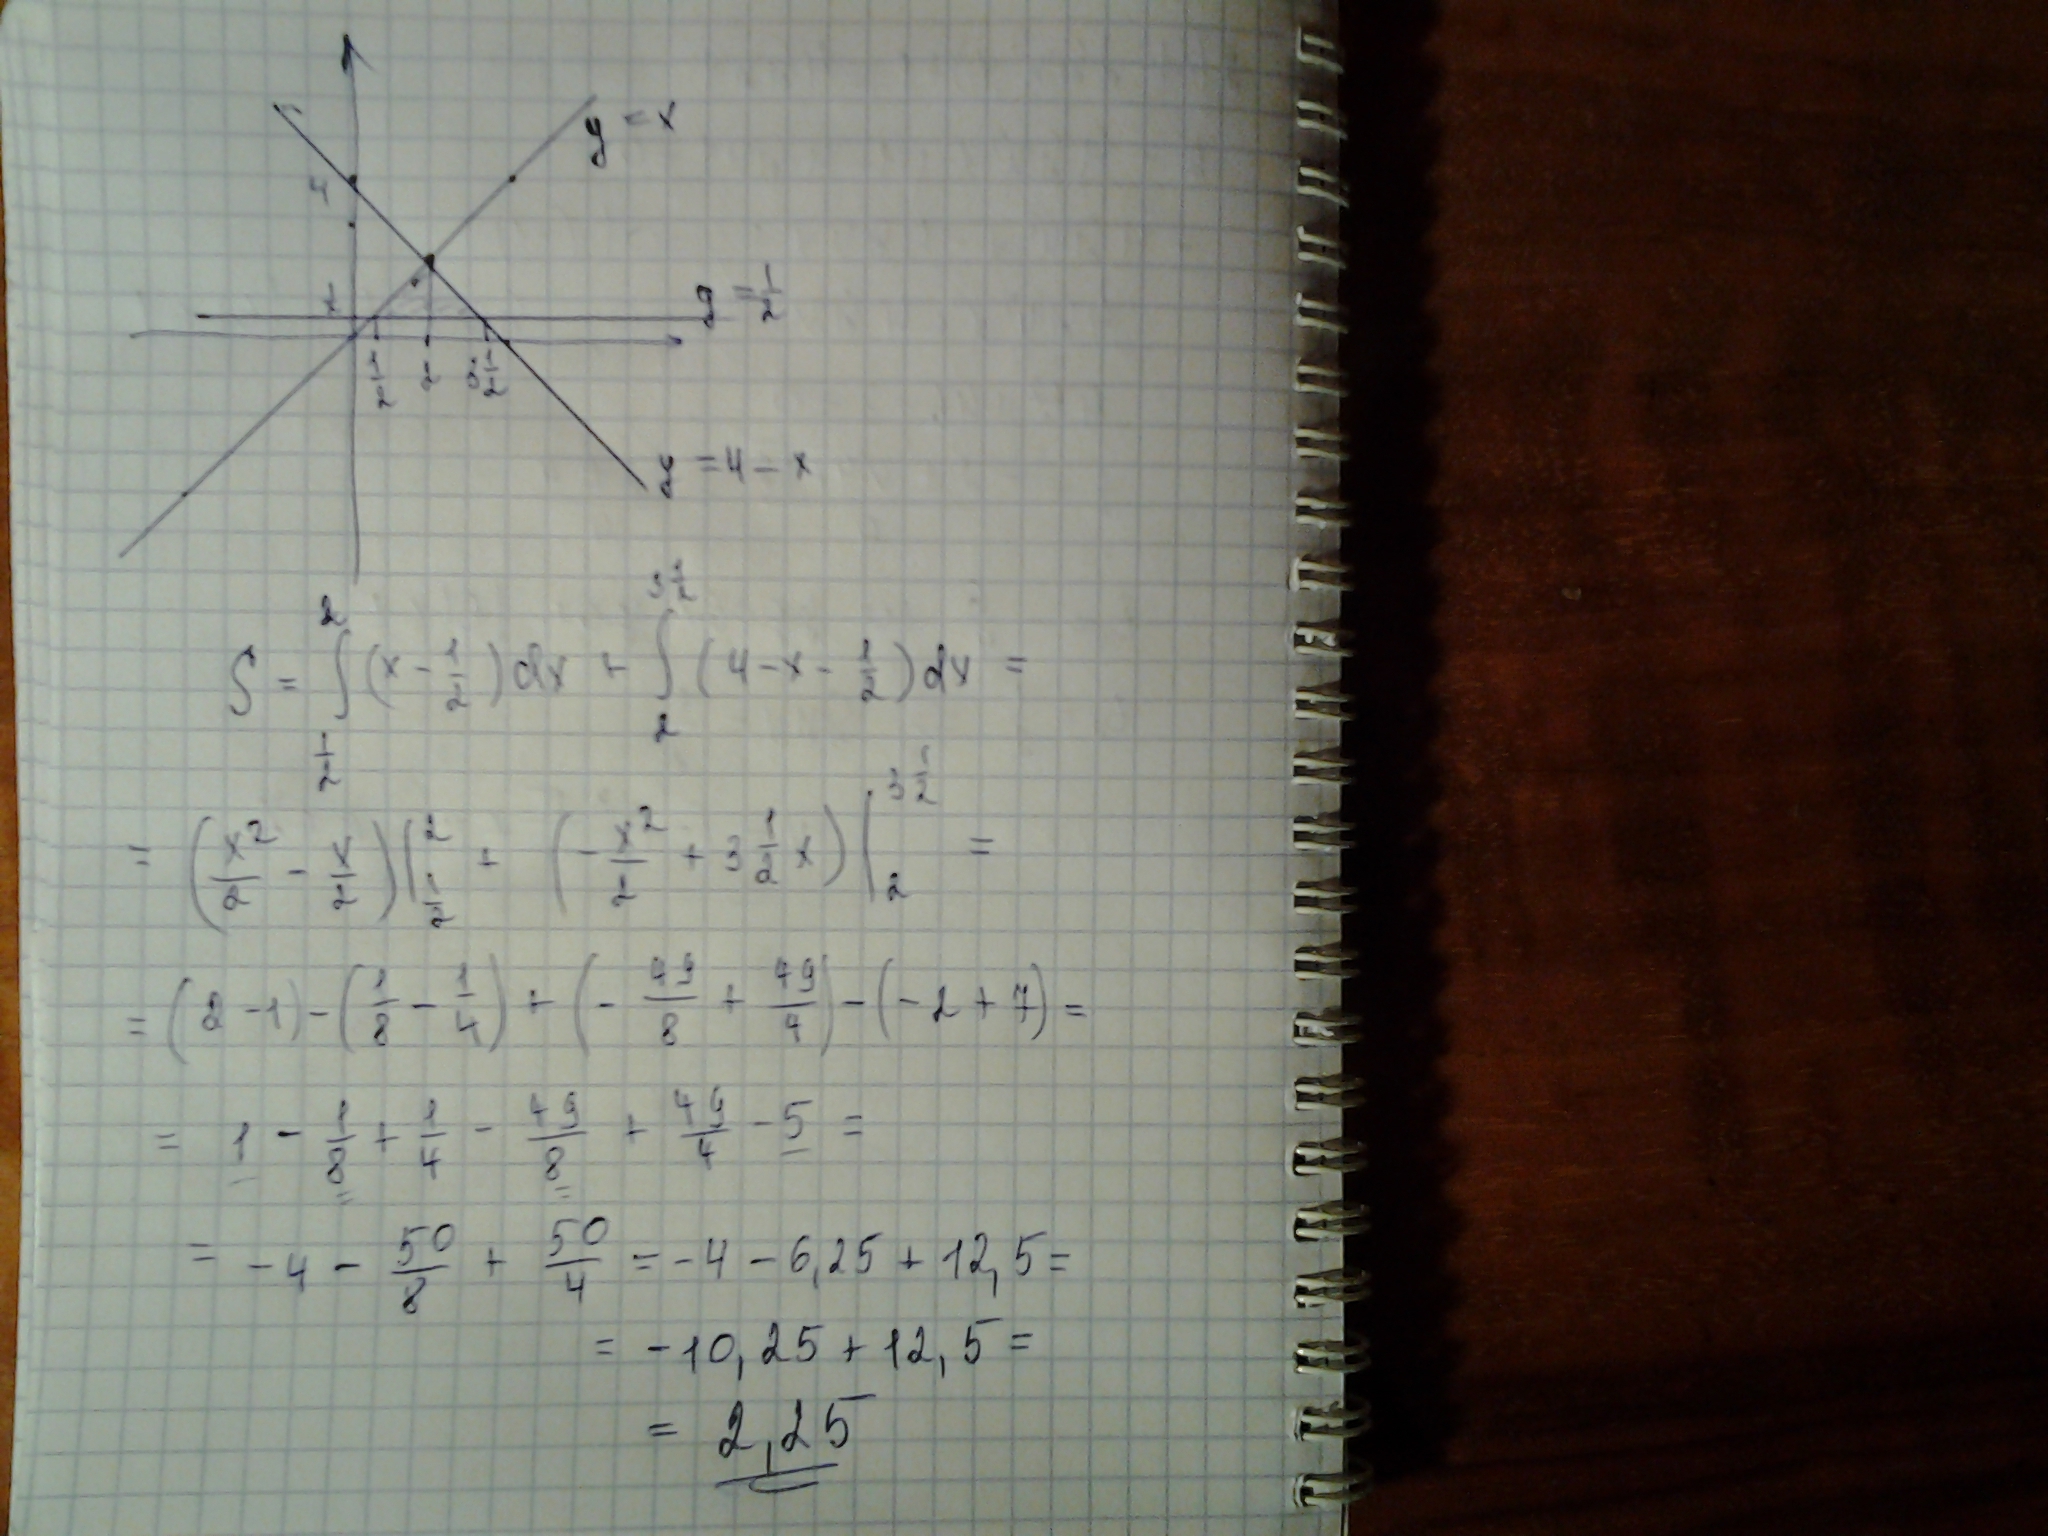 y = x
4
1
y = 1/2
1/2 2 3 1/2
y = 4 - x
S = ∫_{1/2}^{2} (x - 1/2) dx + ∫_{2}^{3 1/2} (4 - x - 1/2) dx =
= (x²/2 - 1/2 x) |_{1/2}^{2} + (- x²/2 + 3 1/2 x) |_{2}^{3 1/2} =
= (2 - 1) - (1/8 - 1/4) + (- 49/8 + 49/4) - (- 2 + 7) =
= 1 - 1/8 + 1/4 - 49/8 + 49/4 - 5 =
= -4 - 50/8 + 50/4 = -4 - 6,25 + 12,5 =
= -10,25 + 12,5 =
= 2,25